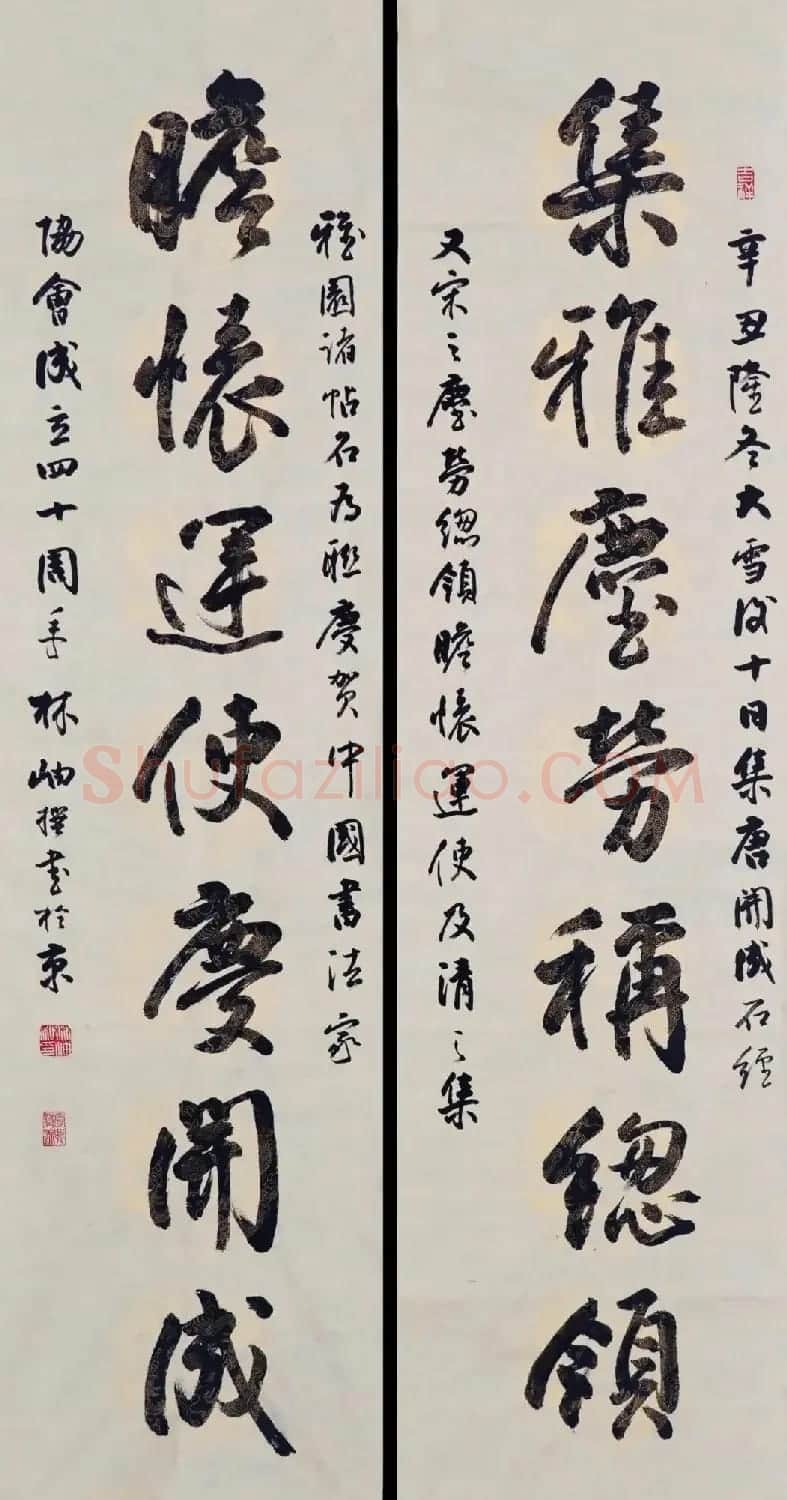 辛丑隆冬大雪後十日集唐開成石經
集雅塵勞稱總領
又宋之塵勞總領瞻懷運使及清之集
雅園諸帖石為聯慶賀中國書法家
瞻懷運使慶開成
協會成立四十周年林岫撰書於京
Shufaziliao.COM